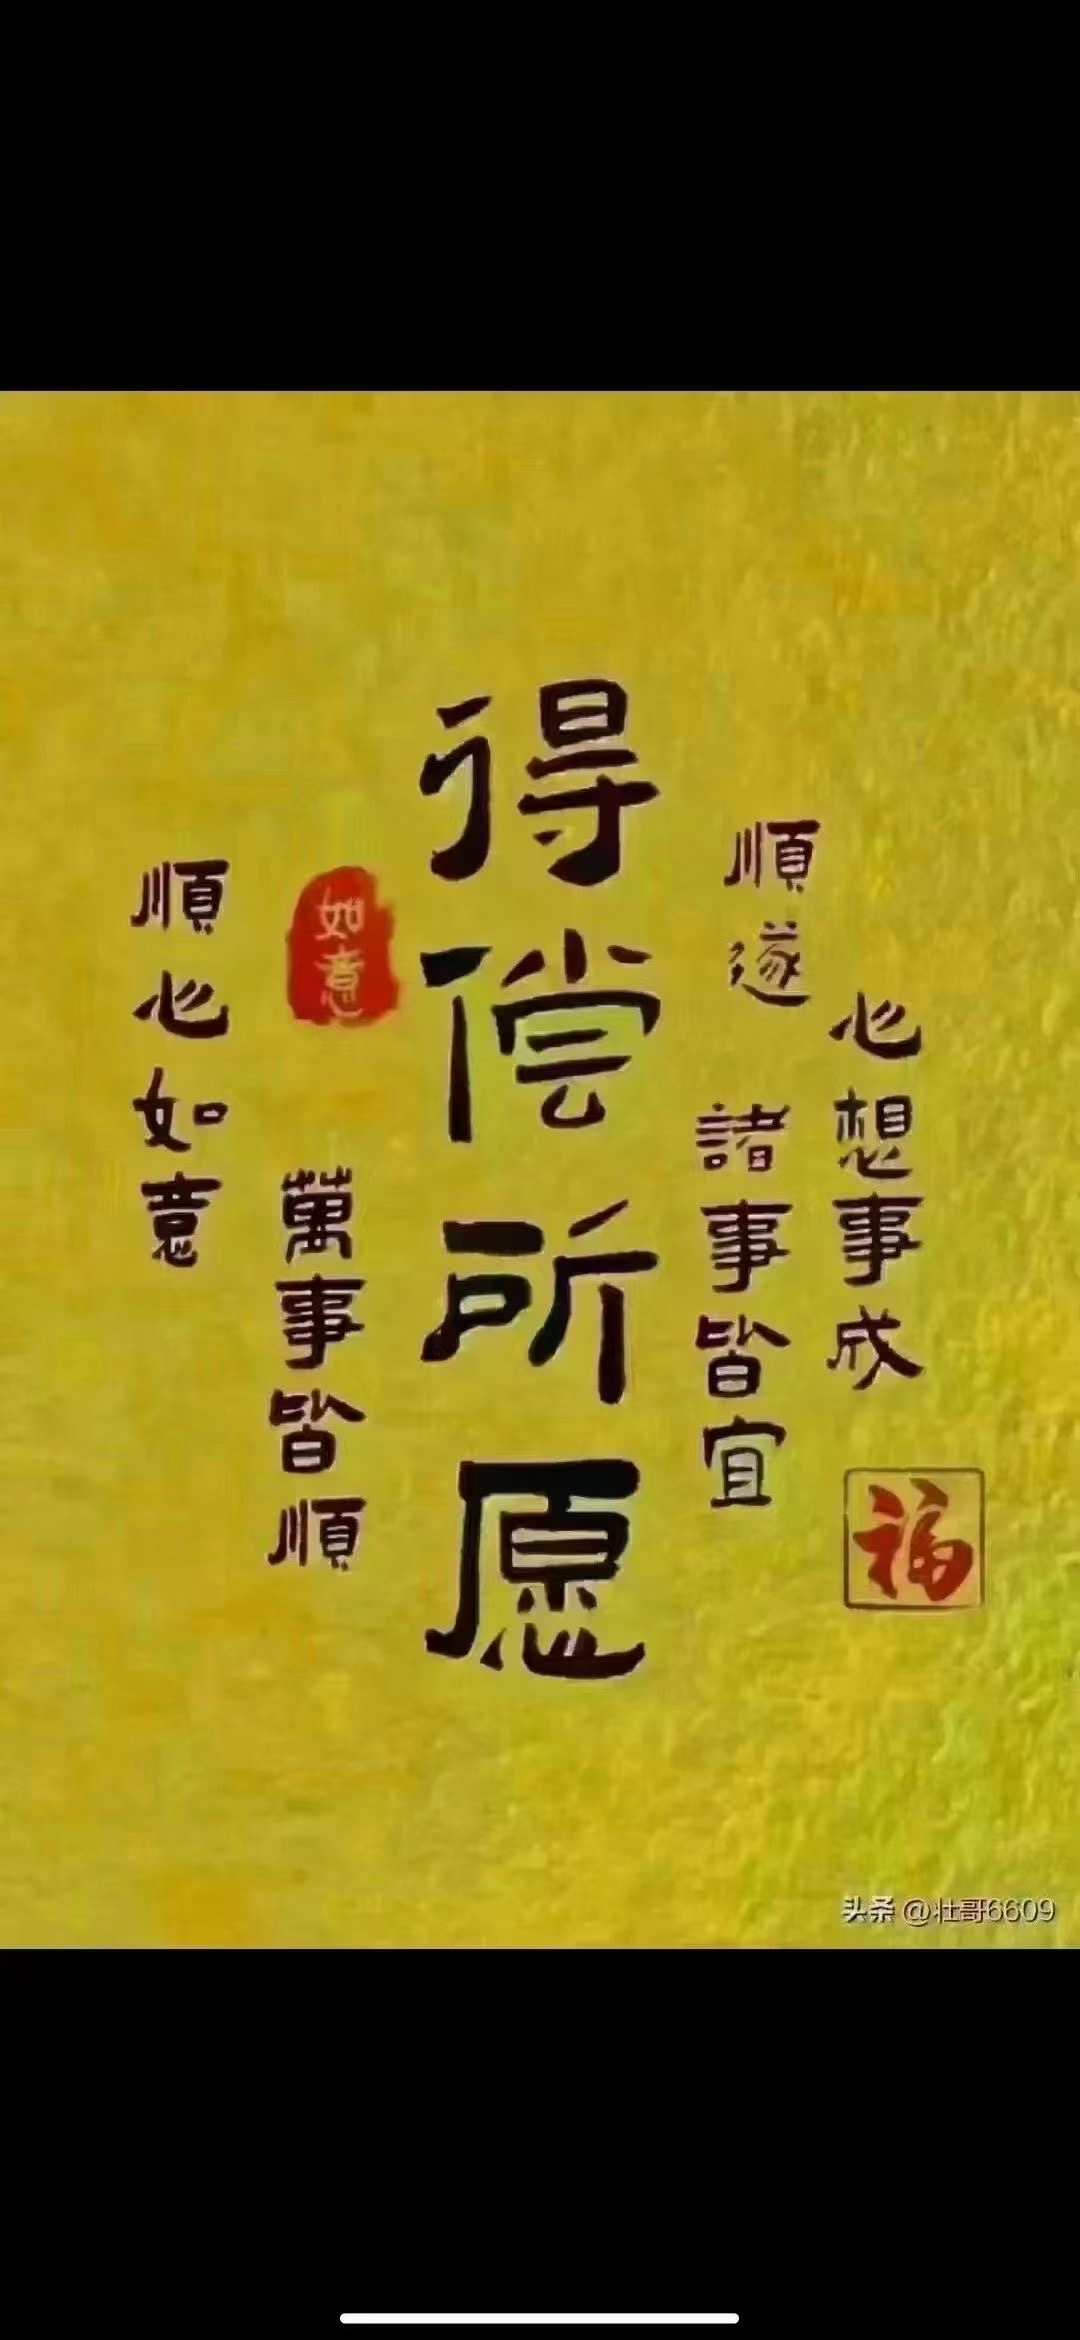 心想事成
福
順遂
諸事皆宜
得偿所愿
如意
萬事皆順
順心如意
头条 @壮哥6609